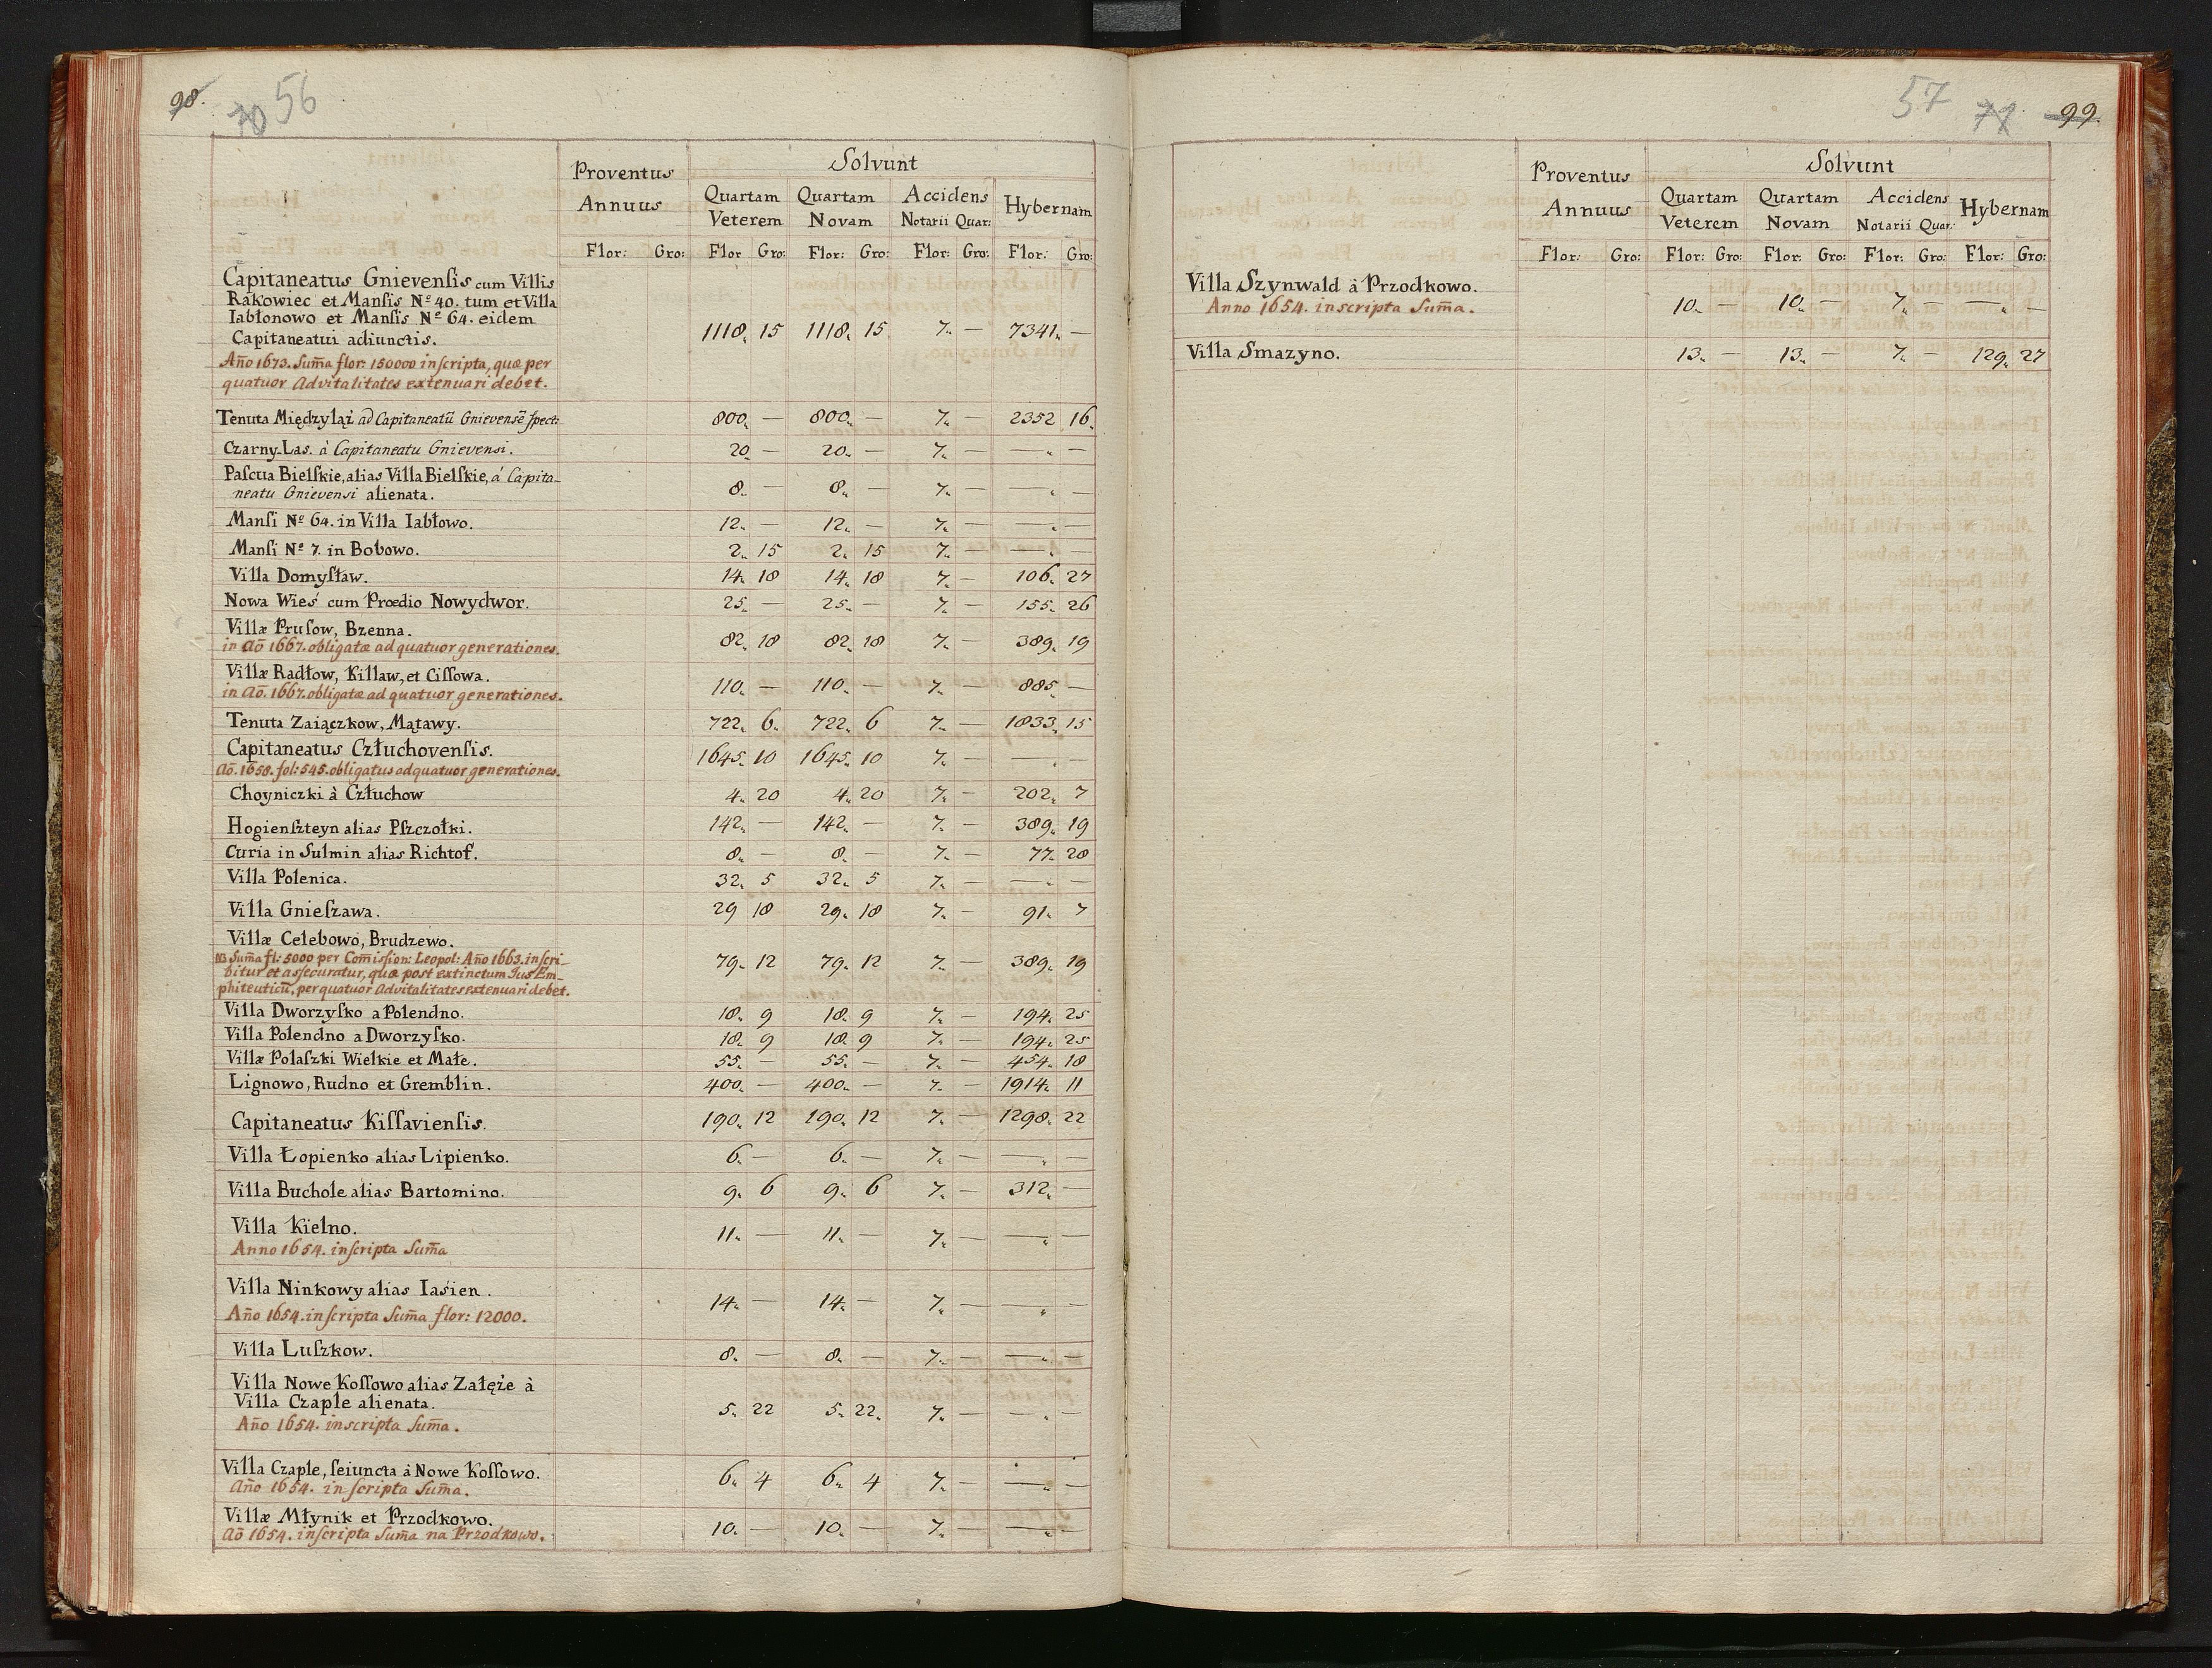 98.
70 56
Proventus Annuus
Solvunt
Quartam Veterem
Quartam Novam
Accidens Notarii Quar:
Hybernam
Flor: Gro: Flor Gro: Flor: Gro: Flor: Gro: Flor: Gro:
Capitaneatus Gnievenſis cum Villis
Rakowiec et Manſis Nº 40. tum et Villa
Iabłonowo et Manſis Nº 64. eidem
Capitaneatui adiunctis. 1118. 15 1118. 15 7. — 7341. —
Año 1673. Sum̃a flor: 150000 inſcripta, quæ per
quatuor Advitalitates extenuari debet.
Tenuta Międzyląż ad Capitaneatū Gnievensē ſpect: 800. — 800. — 7. — 2352 16.
Czarny-Las. à Capitaneatu Gnievensi. 20. — 20. — 7. — — . —
Paſcua Bielſkie, alias Villa Bielſkie, á Capita_
neatu Gnievensi alienata. 8. — 8. — 7. — — . —
Manſi Nº 64. in Villa Iabłowo. 12. — 12. — 7. — — . —
Manſi Nº 7. in Bobowo. 2. 15 2. 15 7. — — . —
Villa Domyſław. 14. 18 14. 18 7. — 106. 27
Nowa Wieś cum Prœdio Nowydwor. 25. — 25. — 7. — 155. 26
Villæ Pruſow, Bzenna. 82. 18 82. 18 7. — 389. 19
in Aō 1667. obligatæ ad quatuor generationes.
Villæ Radłow, Killaw, et Ciſſowa. 110. — 110. — 7. — 885. —
in Aō. 1667. obligatæ ad quatuor generationes.
Tenuta Zaiączkow, Mątawy. 722. 6. 722. 6 7. — 1833. 15
Capitaneatus Człuchovenſis. 1645. 10 1645. 10 7. — — . —
Aō. 1658. fol: 545. obligatus ad quatuor generationes.
Choyniczki à Człuchow 4. 20 4. 20 7. — 202. 7
Hogienſzteyn alias Pſzczołki. 142. — 142. — 7. — 389. 19
Curia in Sulmin alias Richtof. 8. — 8. — 7. — 77. 28
Villa Polenica. 32. 5 32. 5 7. — — . —
Villa Gnieſzawa. 29 18 29. 18 7. — 91. 7
Villæ Celebowo, Brudzewo. 79. 12 79. 12 7. — 389. 19
NB Sum̃a fl: 5000 per Com̃iſsion: Leopol: Año 1663. inſcri_
bitur et aſsecuratur, quæ post extinctum Jus Em_
phiteuticū, per quatuor Advitalitates extenuari debet.
Villa Dworzyſko a Polendno. 18. 9 18. 9 7. — 194. 25
Villa Polendno a Dworzyſko. 18. 9 18. 9 7. — 194. 25
Villæ Polaſzki Wielkie et Małe. 55. — 55. — 7. — 454. 18
Lignowo, Rudno et Gremblin. 400. — 400. — 7. — 1914. 11
Capitaneatus Kiſſavienſis. 190. 12 190. 12 7. — 1298. 22
Villa Łopienko alias Lipienko. 6. — 6. — 7. — — . —
Villa Buchole alias Bartomino. 9. 6 9. 6 7. — 312. —
Villa Kielno. 11. — 11. — 7. — — . —
Anno 1654. inſcripta Sum̃a
Villa Ninkowy alias Iasień. 14. — 14. — 7. — — . —
Año 1654. inſcripta Sum̃a flor: 12000.
Villa Luſzkow. 8. — 8. — 7. — — . —
Villa Nowe Koſſowo alias Załęże à
Villa Czaple alienata. 5. 22 5. 22. 7. — — . —
Año 1654. inscripta Sum̃a.
Villa Czaple, ſeiuncta à Nowe Koſſowo. 6. 4 6. 4 7. — — . —
Año 1654. inſcripta Sum̃a.
Villæ Młynik et Przodkowo. 10. — 10. — 7. — — . —
Aō 1654. inſcripta Sum̃a na Przodkowo.
57 71 99.
Proventus Annuus
Solvunt
Quartam Veterem
Quartam Novam
Accidens Notarii Quar:
Hybernam
Flor: Gro: Flor: Gro: Flor: Gro: Flor: Gro: Flor: Gro:
Villa Szynwald à Przodkowo.
Anno 1654. inscripta Sum̃a. 10. — 10. — 7. — — . —
Villa Smazyno. 13. — 13. — 7. — 129. 27